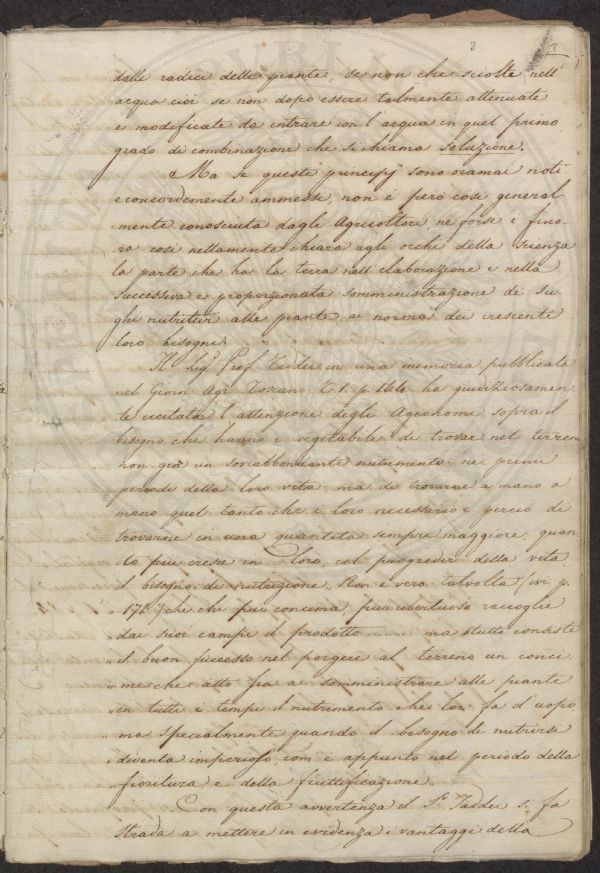 3
dalle radici delle piante, se non che sciolte nell'
acqua cioè se non dopo essere talmente attenuate
e modificate da entrare con l'acqua in quel primo
grado di combinazione che si chiama soluzione.
Ma se questi principj sono oramai noti
e concordemente ammessi, non è però così general
mente conosciuta dagli Agricoltori, ne forse è fino
ra così nettamente chiara agli occhi della scienza
la parte che ha la terra nell'elaborazione e nella
successiva e proporzionata somministrazione de' su
ghi nutritivi alle piante, a norma dei crescenti
loro bisogni.
Il Sig.r Prof. Taddei in una memoria pubblicata
nel Giorn. Agr. Toscano T. 1. p. 164 ha giudiziosamen
te eccitata l'attenzione degli Agronomi sopra il
bisogno che hanno i vegetabili di trovar nel terreno
non già un sovrabbondante nutrimento ne' primi
periodi della loro vita, ma di trovarne a mano a
mano quel tanto che è loro necessario e perciò di
trovarne in una quantità sempre maggiore, quan
to più cresce in loro, col progredir della vita
il bisogno di nutrizione. Non è vero talvolta (ivi p.
171.) che chi più concima, più ubertuoso raccoglie
„ dai suoi campi il prodotto ........ ma tutto consiste
„ il buon successo nel porgere al terreno un conci
„ me che atto sia a somministrare alle piante
„ in tutti i tempi il nutrimento che lor fa d'uopo
„ ma specialmente quando il bisogno di nutrirsi
„ diventa imperioso, com'è appunto nel periodo della
„ fioritura, e della fruttificazione„
Con questa avvertenza il S.r Taddei si fa
strada a mettere in evidenza i vantaggi della